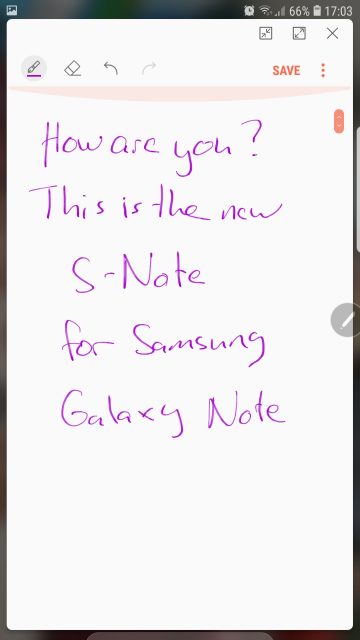 66% 17:03
SAVE
How are you?
This is the new
S-Note
for Samsung
Galaxy Note